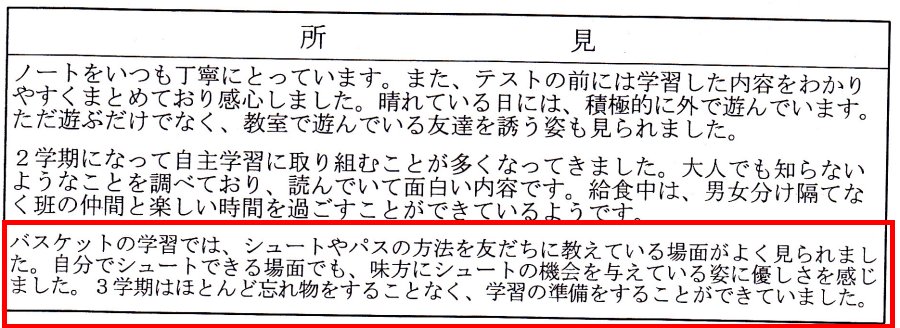 所 見
ノートをいつも丁寧にとっています。また、テストの前には学習した内容をわかり
やすくまとめており感心しました。晴れている日には、積極的に外で遊んでいます。
ただ遊ぶだけでなく、教室で遊んでいる友達を誘う姿も見られました。
２学期になって自主学習に取り組むことが多くなってきました。大人でも知らない
ようなことを調べており、読んでいて面白い内容です。給食中は、男女分け隔てな
く班の仲間と楽しい時間を過ごすことができているようです。
バスケットの学習では、シュートやパスの方法を友だちに教えている場面がよく見られまし
た。自分でシュートできる場面でも、味方にシュートの機会を与えている姿に優しさを感じ
ました。３学期はほとんど忘れ物をすることなく、学習の準備をすることができていました。